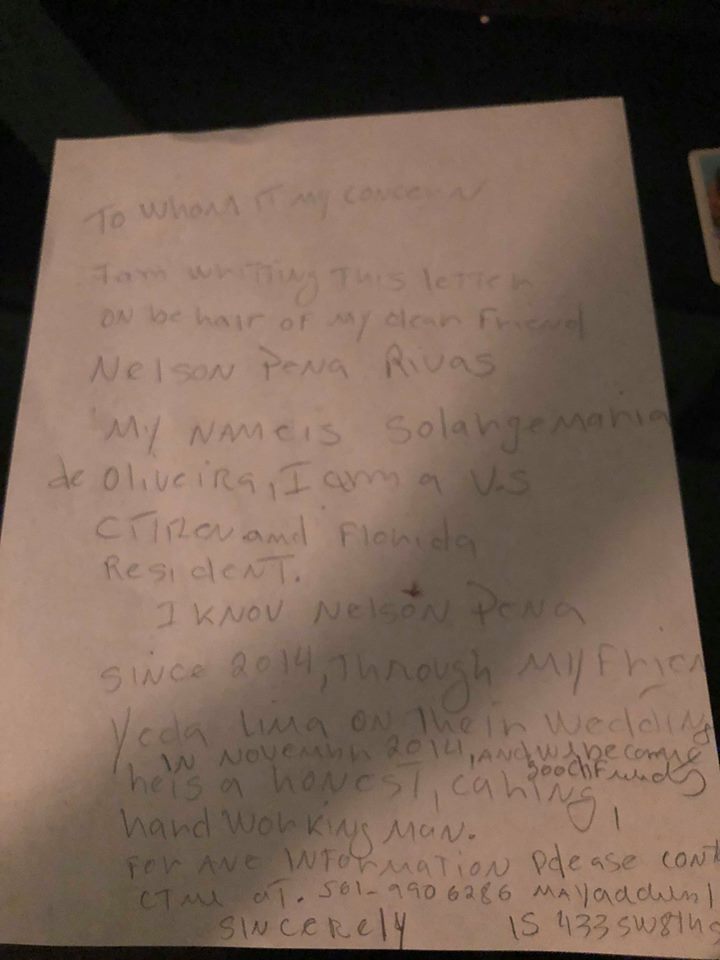 To Whom IT my concern
I am writting This letter
ON be hair of My dear Friend
Nelson Pena Rivas
My NAME is Solange Maria
de Oliveira, I am a U.S
CTIZEN and Florida
Resident.
I KNOV Nelson Pena
since 2014, Through My Frien
Yeda Lima ON Their Wedding
IN Novembr 2014, and we become
good Friends
he is a honest, caring,
hard working man.
For ANE INFORMATION Please cont
CT me at. 561-990 6286 My address
SINCERELY IS 433 SW 8th S